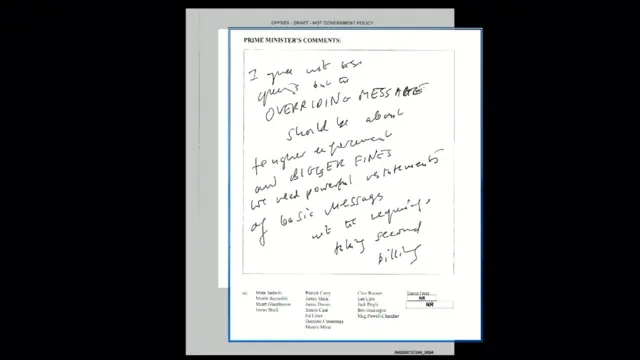 OFFSEN - DRAFT - NOT GOVERNMENT POLICY
PRIME MINISTER'S COMMENTS:
I agree with
but the
OVERRIDING MESSAGE
should be about
tougher enforcement
and BIGGER FINES
we need powerful restatements
of basic message
with the
taking second
billing
cc:
Mark Sedwill
Patrick Curry
Clare Watson
Martin Reynolds
James Slack
Lee Cain
Stuart Glassborow
James Davies
Jack Doyle
Imran Shafi
Simon Case
Ben Gascoigne
Ed Lister
Meg Powell-Chandler
Dominic Cummings
Munira Mirza
NR
NR